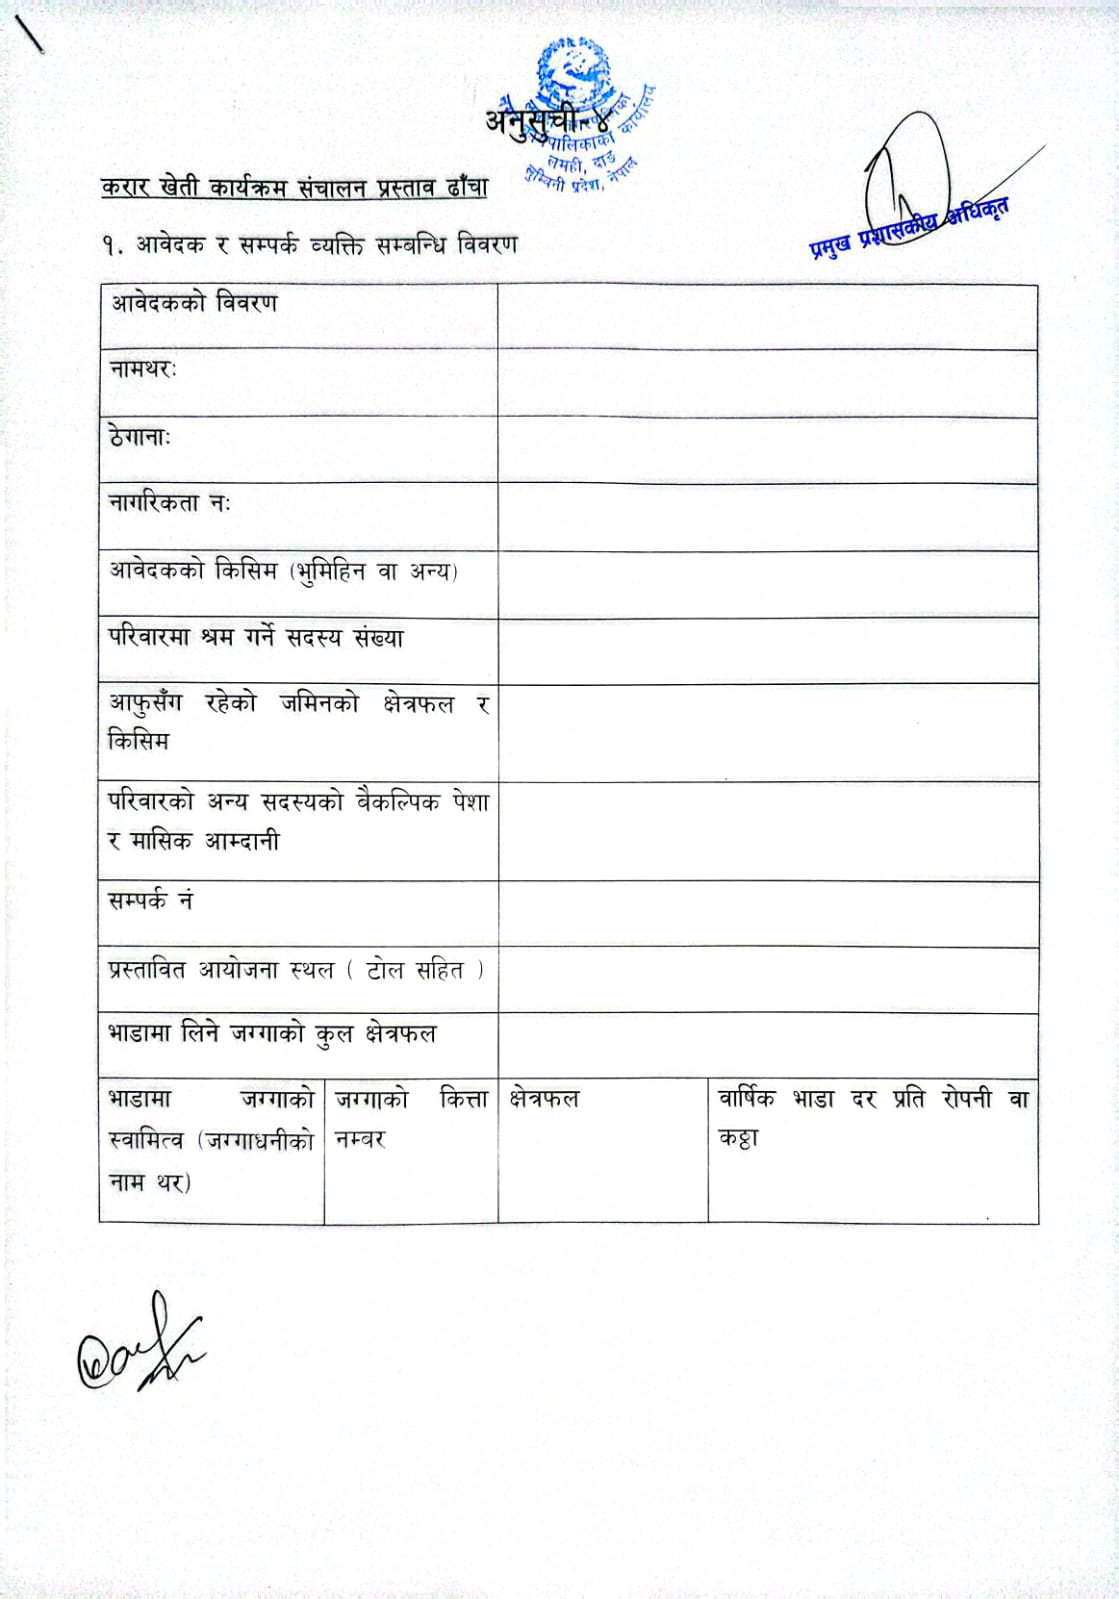 अनुसुची-४
नगरपालिकाको कार्यालय
लमही, दाङ
लुम्बिनी प्रदेश, नेपाल
प्रमुख प्रशासकीय अधिकृत
करार खेती कार्यक्रम संचालन प्रस्ताव ढाँचा
१. आवेदक र सम्पर्क व्यक्ति सम्बन्धि विवरण
आवेदकको विवरण
नामथरः
ठेगानाः
नागरिकता नः
आवेदकको किसिम (भुमिहिन वा अन्य)
परिवारमा श्रम गर्ने सदस्य संख्या
आफुसँग रहेको जमिनको क्षेत्रफल र
किसिम
परिवारको अन्य सदस्यको बैकल्पिक पेशा
र मासिक आम्दानी
सम्पर्क नं
प्रस्तावित आयोजना स्थल ( टोल सहित )
भाडामा लिने जग्गाको कुल क्षेत्रफल
भाडामा जग्गाको
स्वामित्व (जग्गाधनीको
नाम थर)
जग्गाको कित्ता
नम्वर
क्षेत्रफल
वार्षिक भाडा दर प्रति रोपनी वा
कठ्ठा